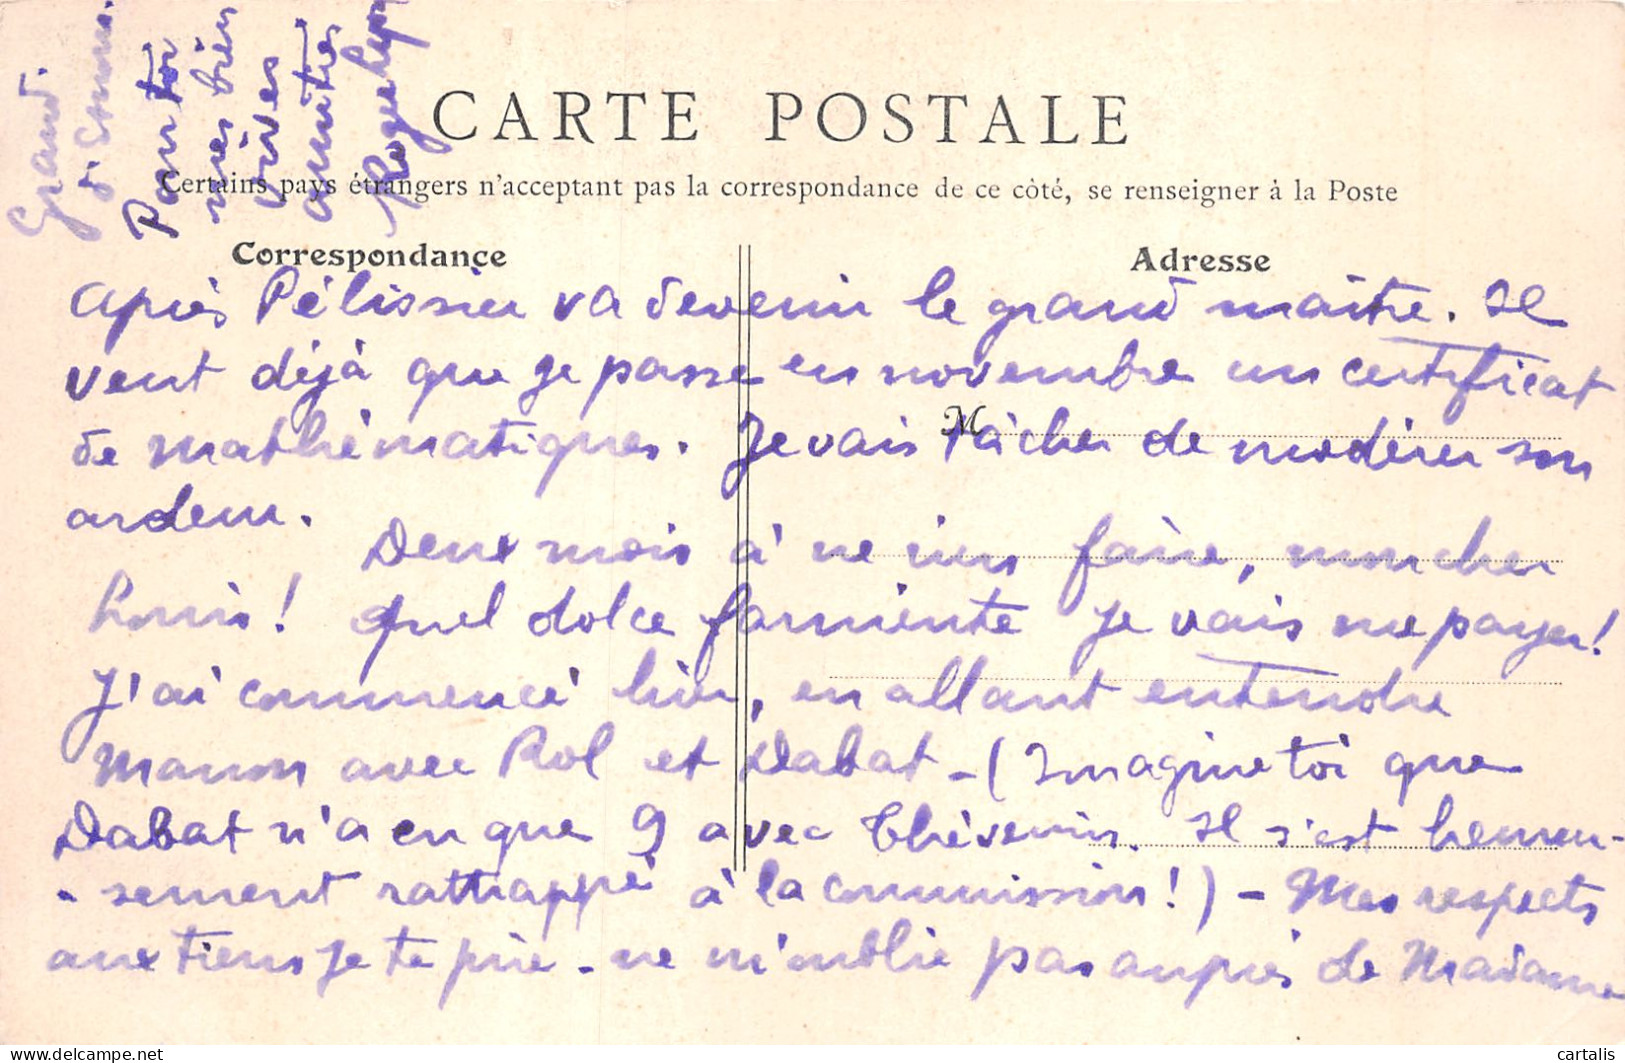 CARTE POSTALE
Certains pays étrangers n'acceptant pas la correspondance de ce côté, se renseigner à la Poste
Correspondance
Adresse
M
après Pélissier va devenir le grand maître. Il
veut déjà que je passe en novembre un certificat
de mathématiques. Je vais tâcher de modérer son
ardeur.
Deux mois à ne rien faire, mon cher
Louis! Quel dolce farniente je vais me payer!
J'ai commencé hier, en allant entendre
Manon avec Rol et Dabat - (Imagine toi que
Dabat n'a eu que 9 avec Thévenin. Il s'est heureu-
-sement rattrappé à la commission!) - Mes respects
aux tiens je te prie - ne m'oublie pas auprès de Madame
Grand
Pour toi
mes bien
vives
amitiés
delcampe.net
cartalis